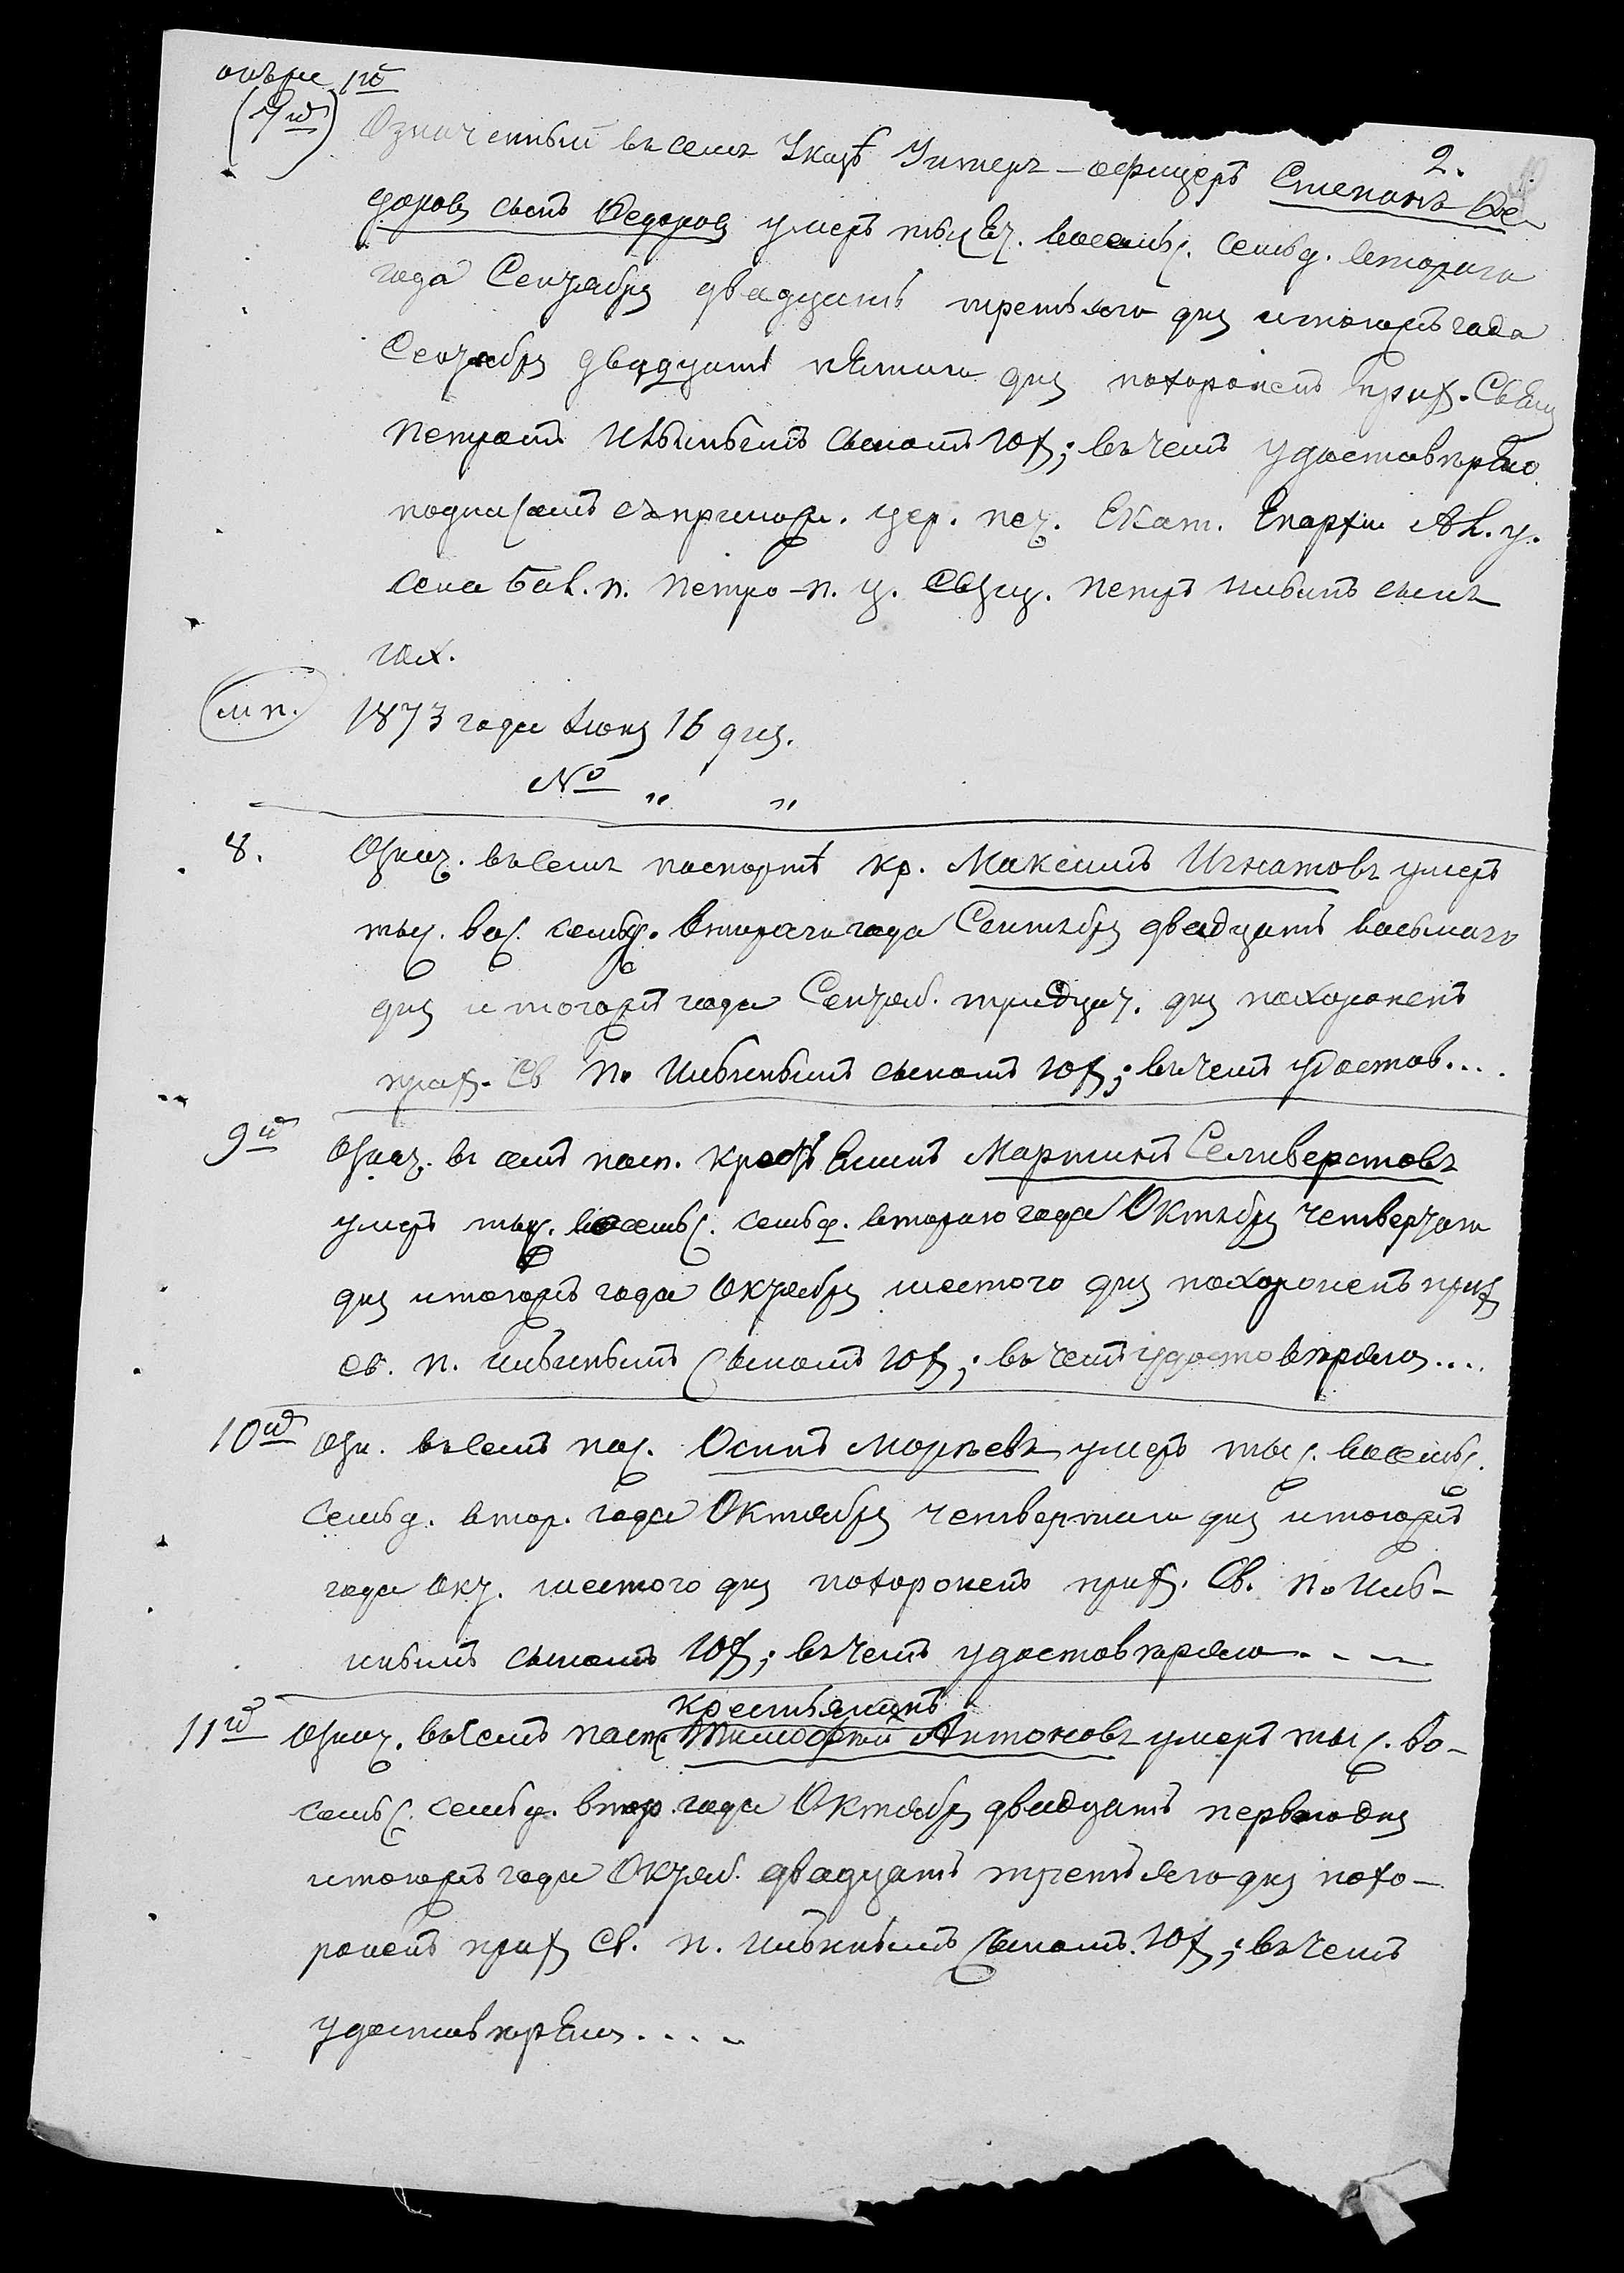 1й
(7й)
2.
Означенный въ семъ Указѣ Унтеръ-офицеръ Степанъ Ѳе-
доровъ сынъ Ѳедоровъ умеръ тысяч. восемьс. семьд. втораго
года Сентября двадцать третьяго дня и тогожъ года
Сентября двадцать пятаго дня похороненъ прих. Свящ
Петромъ сыномъ Юх; въ чемъ удостовѣряю
подписомъ съ прилож. цер. печ. Екат. Епархіи Ал. у.
села Бал. п. Петро-п. ц. Свящ. Петръ сынъ
Юх.
м п. 1873 года Іюня 16 дня.
№ „ „
8. Означ. въ семъ паспортѣ кр. Максимъ Игнатовъ умеръ
тыс. вос. семьд. втораго года Сентября двадцать восьмаго
дня и тогожъ года Сентяб. тридцат. дня похороненъ
прих. Св П. сыномъ Юх; въ чемъ удостов....
9й Означ. въ семъ пасп. крестьянинъ Мартинъ Селиверстовъ
умеръ тыс. восемьс. семьд. втораго года Октября четвертаго
дня и тогожъ года Октября шестого дня похороненъ прих
св. п. сыномъ Юх; въ чемъ удостовѣряю....
10й Озн. въ семъ пас. Осипъ умеръ тыс. восемьс.
семьд. втор. года Октября четвертаго дня и тогожъ
года Окт. шестого дня похороненъ прих. Св. П.
сыномъ Юх; въ чемъ удостовѣряю....
крестьянинъ
11й Означ. въ семъ пасп. Тимофей Антоновъ умеръ тыс. во-
семьс. семьд. втор. года Октября двадцать перваго дня
и тогожъ года Октяб. двадцать третьяго дня похо-
роненъ прих Св. П. сыномъ Юх; въ чемъ
удостовѣряю....